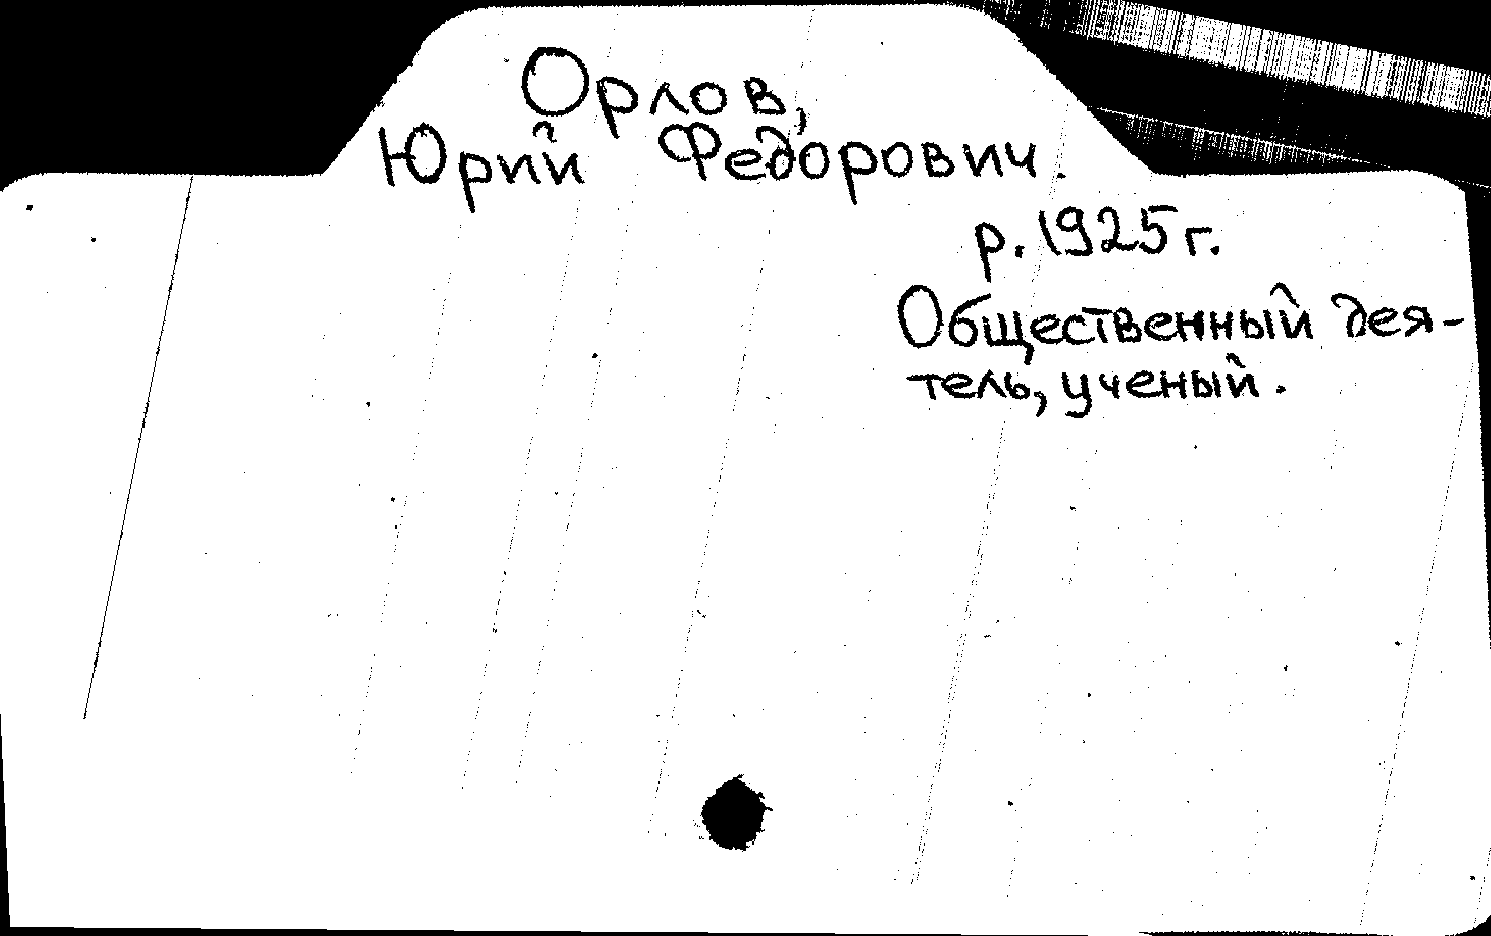 Орлов,
Юрий Федорович.
р. 1925 г.
Общественный дея-
тель, ученый.